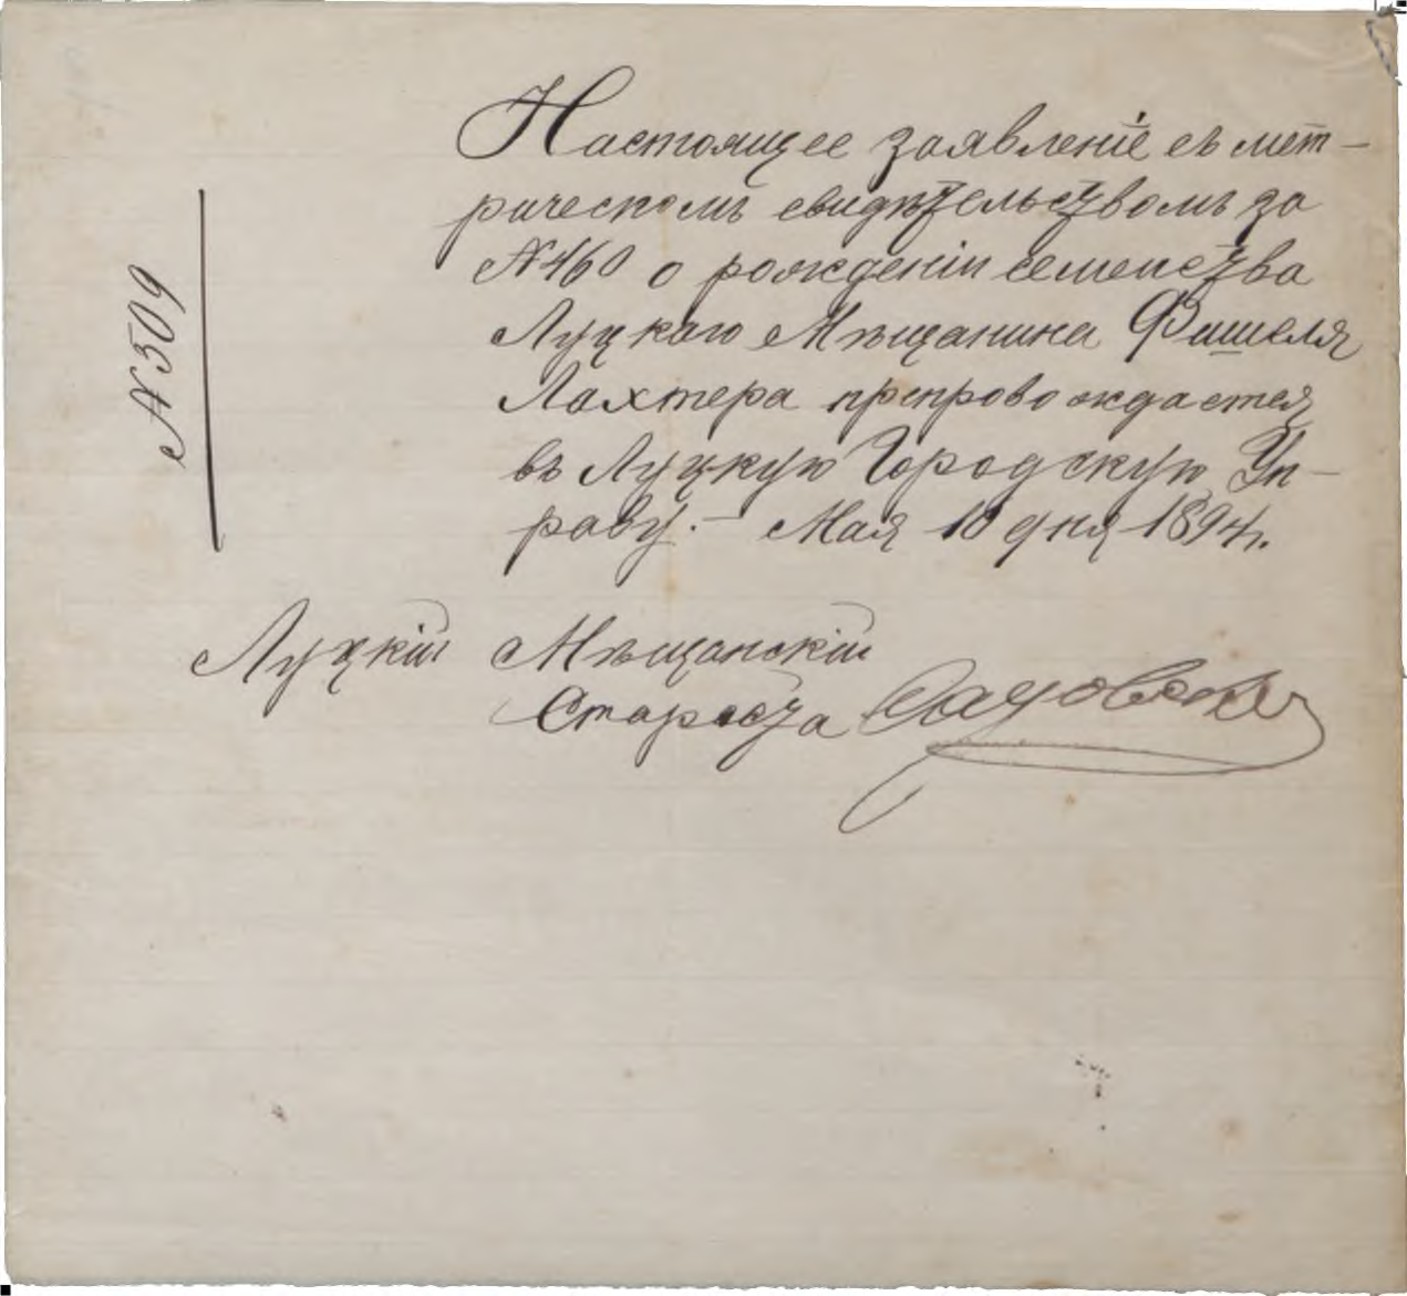 № 509
Настоящее заявленіе съ мет-
рическомъ свидѣтельствомъ за
№ 460 о рожденіи семейства
Луцкаго Мѣщанина Фишеля
Лахтера препровождается
въ Луцкую Городскую Уп-
раву. — Мая 10 дня 1894 г.
Луцкій Мѣщанскій
Староста